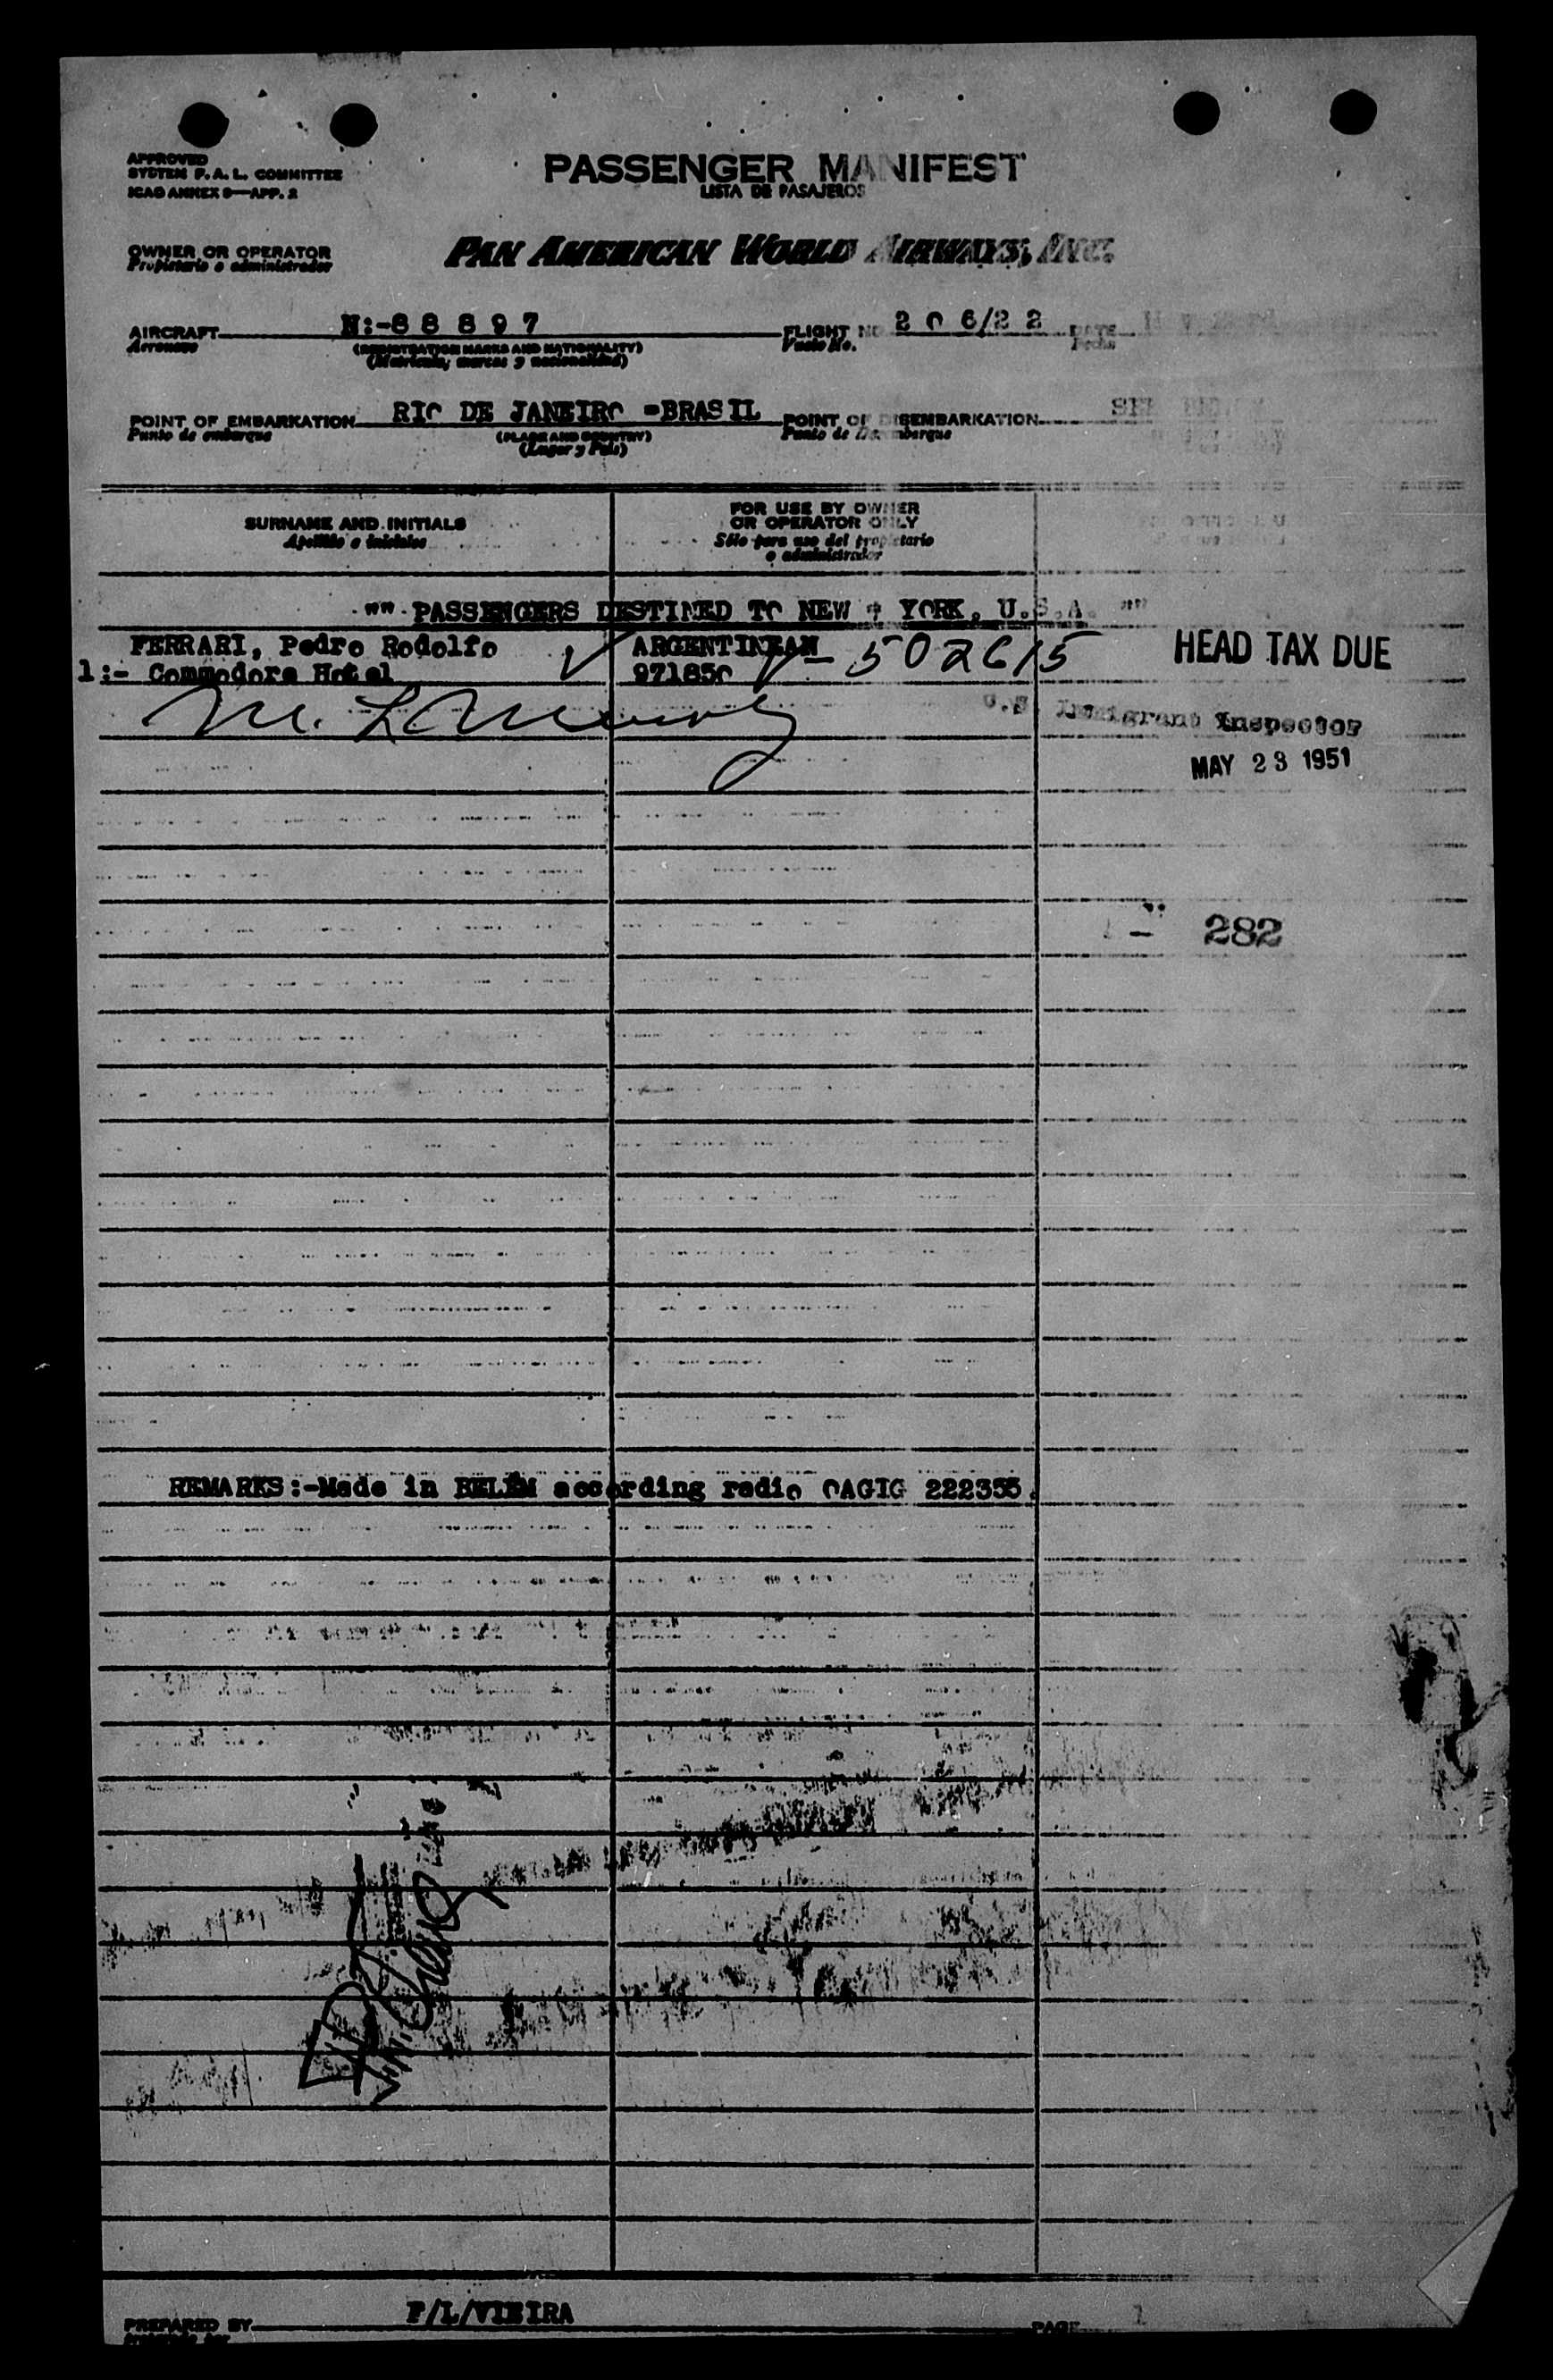 APPROVED
SYSTEM F. A. L. COMMITTEE
ICAO ANNEX 9—APP. 2
PASSENGER MANIFEST
LISTA DE PASAJEROS
OWNER OR OPERATOR
Propietario o administrador
PAN AMERICAN WORLD AIRWAYS, INC.
AIRCRAFT N:-8 8 8 9 7 FLIGHT NO. 2 0 6/2 2 DATE
Aeronave (REGISTRATION MARKS AND NATIONALITY) Vuelo No. Fecha
(Matricula, marcas y nacionalidad)
POINT OF EMBARKATION RIO DE JANEIRO =BRASIL POINT OF DISEMBARKATION
Punto de embarque (PLACE AND COUNTRY) Punto de desembarque
(Lugar y País)
SURNAME AND INITIALS
Apellido e iniciales
FOR USE BY OWNER
OR OPERATOR ONLY
Sólo para uso del propietario
o administrador
"" PASSENGERS DESTINED TO NEW YORK, U.S.A. ""
FERRARI, Pedro Rodolfo ARGENTINEAN V- 502615 HEAD TAX DUE
1:- Commodore Hotel 971850
U.S. Immigrant Inspector
MAY 23 1951
282
REMARKS:-Made in BELÉM according radio OAGIG 222355.
PREPARED BY F/L/VIEIRA PAGE 1